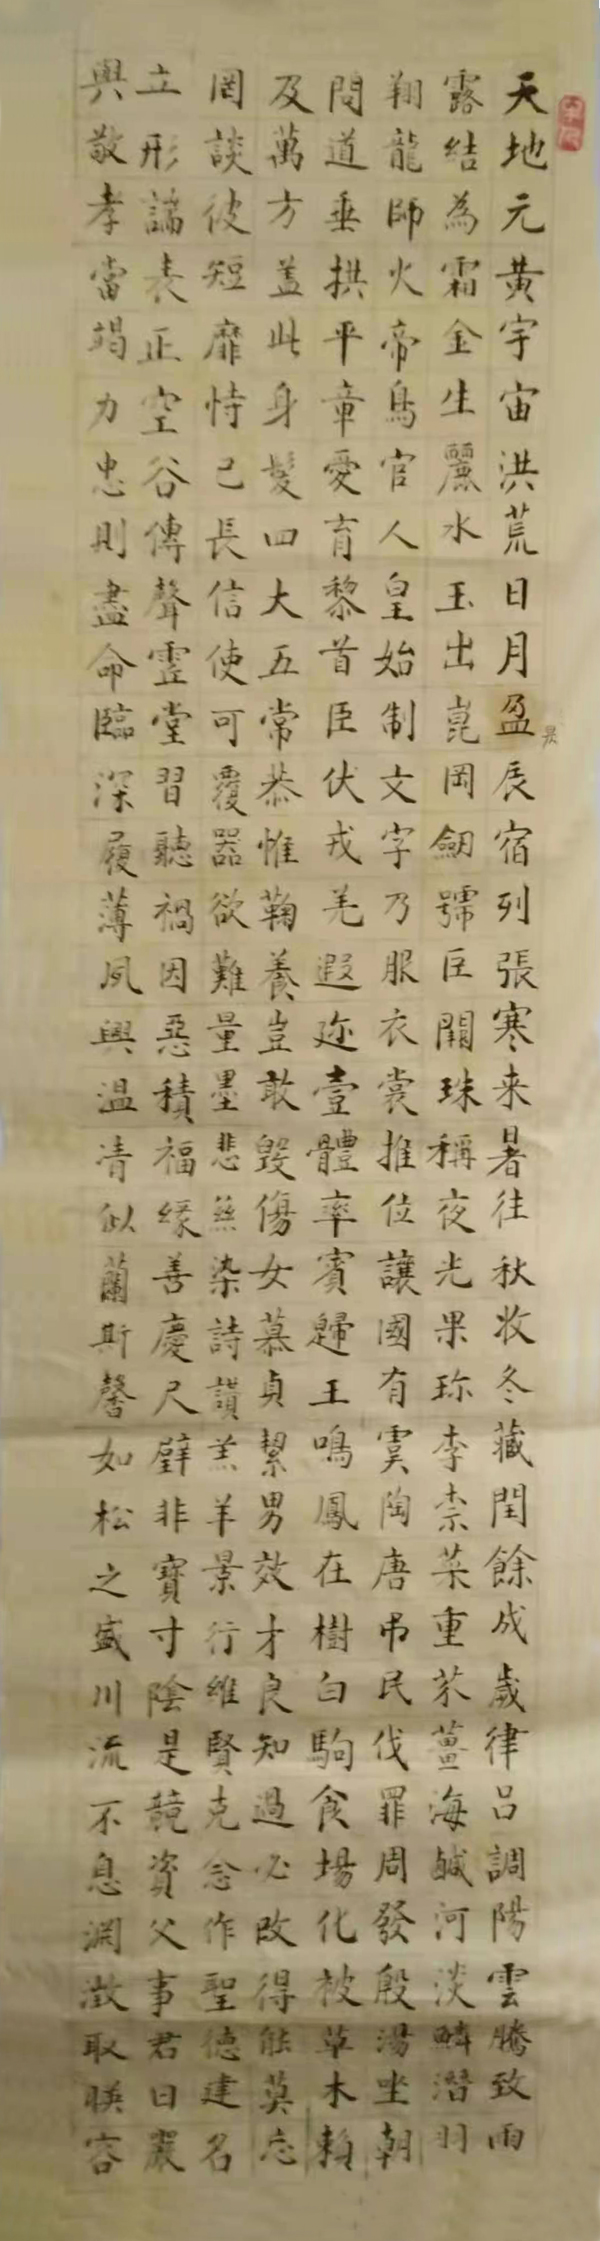 天地元黃宇宙洪荒日月盈辰宿列張寒来暑往秋收冬藏閏餘成歲律吕調陽雲騰致雨
昃
露結為霜金生麗水玉出崑岡劒號巨闕珠稱夜光果珎李柰菜重芥薑海鹹河淡鱗潛羽
翔龍師火帝鳥官人皇始制文字乃服衣裳推位讓國有虞陶唐吊民伐罪周發殷湯坐朝
問道垂拱平章愛育黎首臣伏戎羌遐迩壹體率賓歸王鳴鳳在樹白駒食場化被草木賴
及萬方盖此身髮四大五常恭惟鞠養豈敢毀傷女慕貞絜男效才良知過必改得能莫忘
罔談彼短靡恃己長信使可覆器欲難量墨悲絲染詩讚羔羊景行維賢克念作聖德建名
立形端表正空谷傳聲虛堂習聽禍因惡積福緣善慶尺璧非寶寸陰是競資父事君曰嚴
與敬孝當竭力忠則盡命臨深履薄夙興温凊似蘭斯馨如松之盛川流不息淵澂取暎容